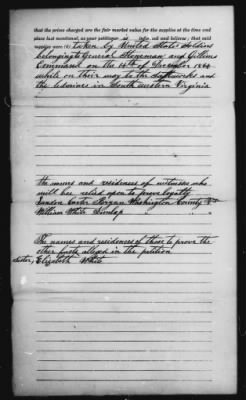 that the prices charged are the fair market value for the supplies at the time and
place last mentioned, as your petitioner is informed and believes; that said
supplies were (4) taken by United States soldiers
belonging to General Stoneman and Gillems
Command on the 14th of December 1864
while on their way to the Saltworks and
the leadmines in South western Virginia
The names and residences of witnesses who
will be relied upon to prove loyalty
Landon Carter Bryan Washington County Va
William White Dunlap " " "
The names and residences of those to prove the
other facts alleged in the petition
sister, Elizabeth White